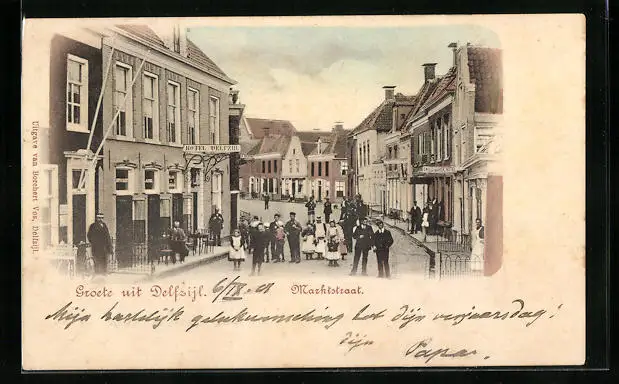 HOTEL DELFZIJL
Uitgave van Borchert Vos, Delfzijl.
Groete uit Delfzijl. 6/IX-01 Marktstraat.
Mijn hartelijk gelukwensching bet dijn verjaardag!
dijn Papa.